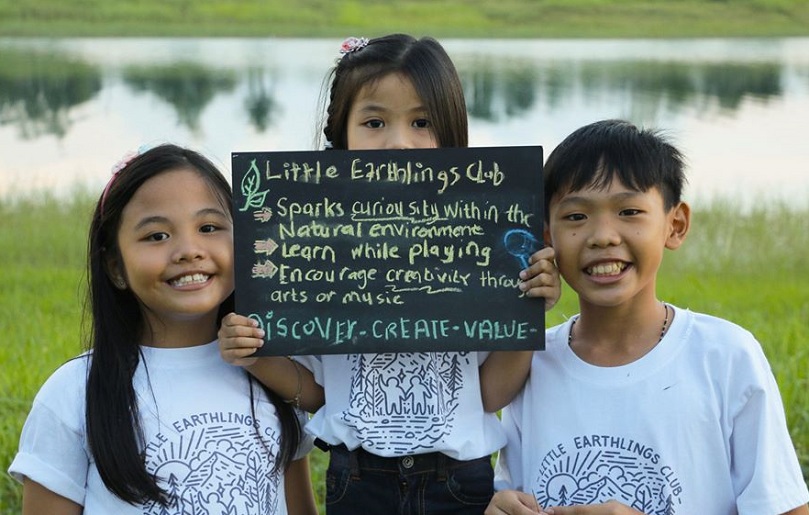 Little Earthlings Club
Sparks curiousity within the
Natural environment
Learn while playing
Encourage creativity throu
arts or music
DiSCOVER-CREATE-VALUE-
LITTLE EARTHLINGS CLUB
LITTLE EARTHLINGS CLUB